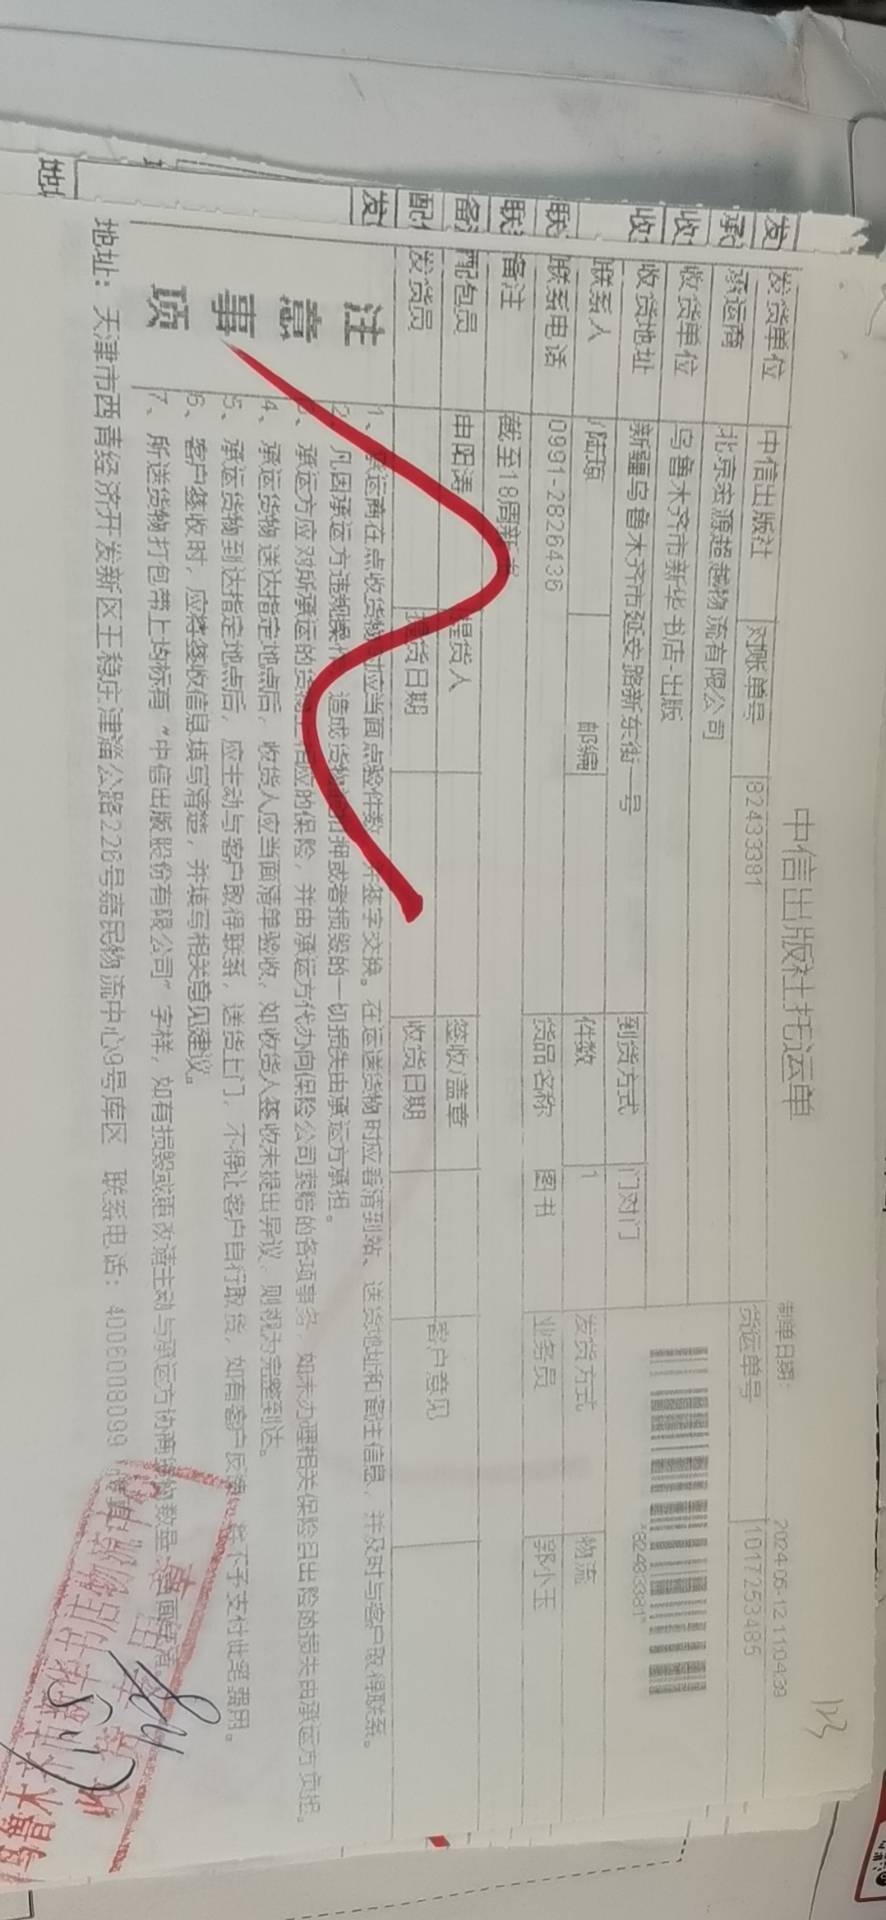 中信出版社托运单
制单日期： 2024-05-12 11:04:39
123
发货单位 中信出版社 对账单号 82433381 货运单号 1017253485
承运商 北京宏源超越物流有限公司
收货单位 乌鲁木齐市新华书店-出版
收货地址 新疆乌鲁木齐市延安路新东街一号 到货方式 门对门
*82433381*
联系人 邮编 件数 1 发货方式 物流
联系电话 0991-2826436 货品名称 图书 业务员 郭小玉
备注 截至18周新
配包员 申阳涛 提货人 签收/盖章 客户意见
发货员 提货日期 收货日期
注意事项
1、承运商在点收货物时应当面点验件数，并签字交换。在运送货物时应看清到站、送货地址和备注信息，并及时与客户取得联系。
2、凡因承运方违规操作，造成货物的扣押或者损毁的一切损失由承运方承担。
3、承运方应对所承运的货物上相应的保险，并由承运方代办向保险公司索赔的各项事务，如未办理相关保险且出险的损失由承运方负担。
4、承运货物送达指定地点后，收货人应当面清单验收，如收货人签收未提出异议，则视为完整到达。
5、承运货物到达指定地点后，应主动与客户取得联系，送货上门，不得让客户自行取货，如有客户反馈，将不予支付此笔费用。
6、客户签收时，应将签收信息填写清楚，并填写相关意见建议。
7、所送货物打包带上均标有“中信出版股份有限公司”字样，如有损毁或更改请主动与承运方协商
地址：天津市西青经济开发新区王稳庄津淄公路226号嘉民物流中心9号库区 联系电话：4006008099
乌鲁木齐市新华书店物流中心
收货专用章